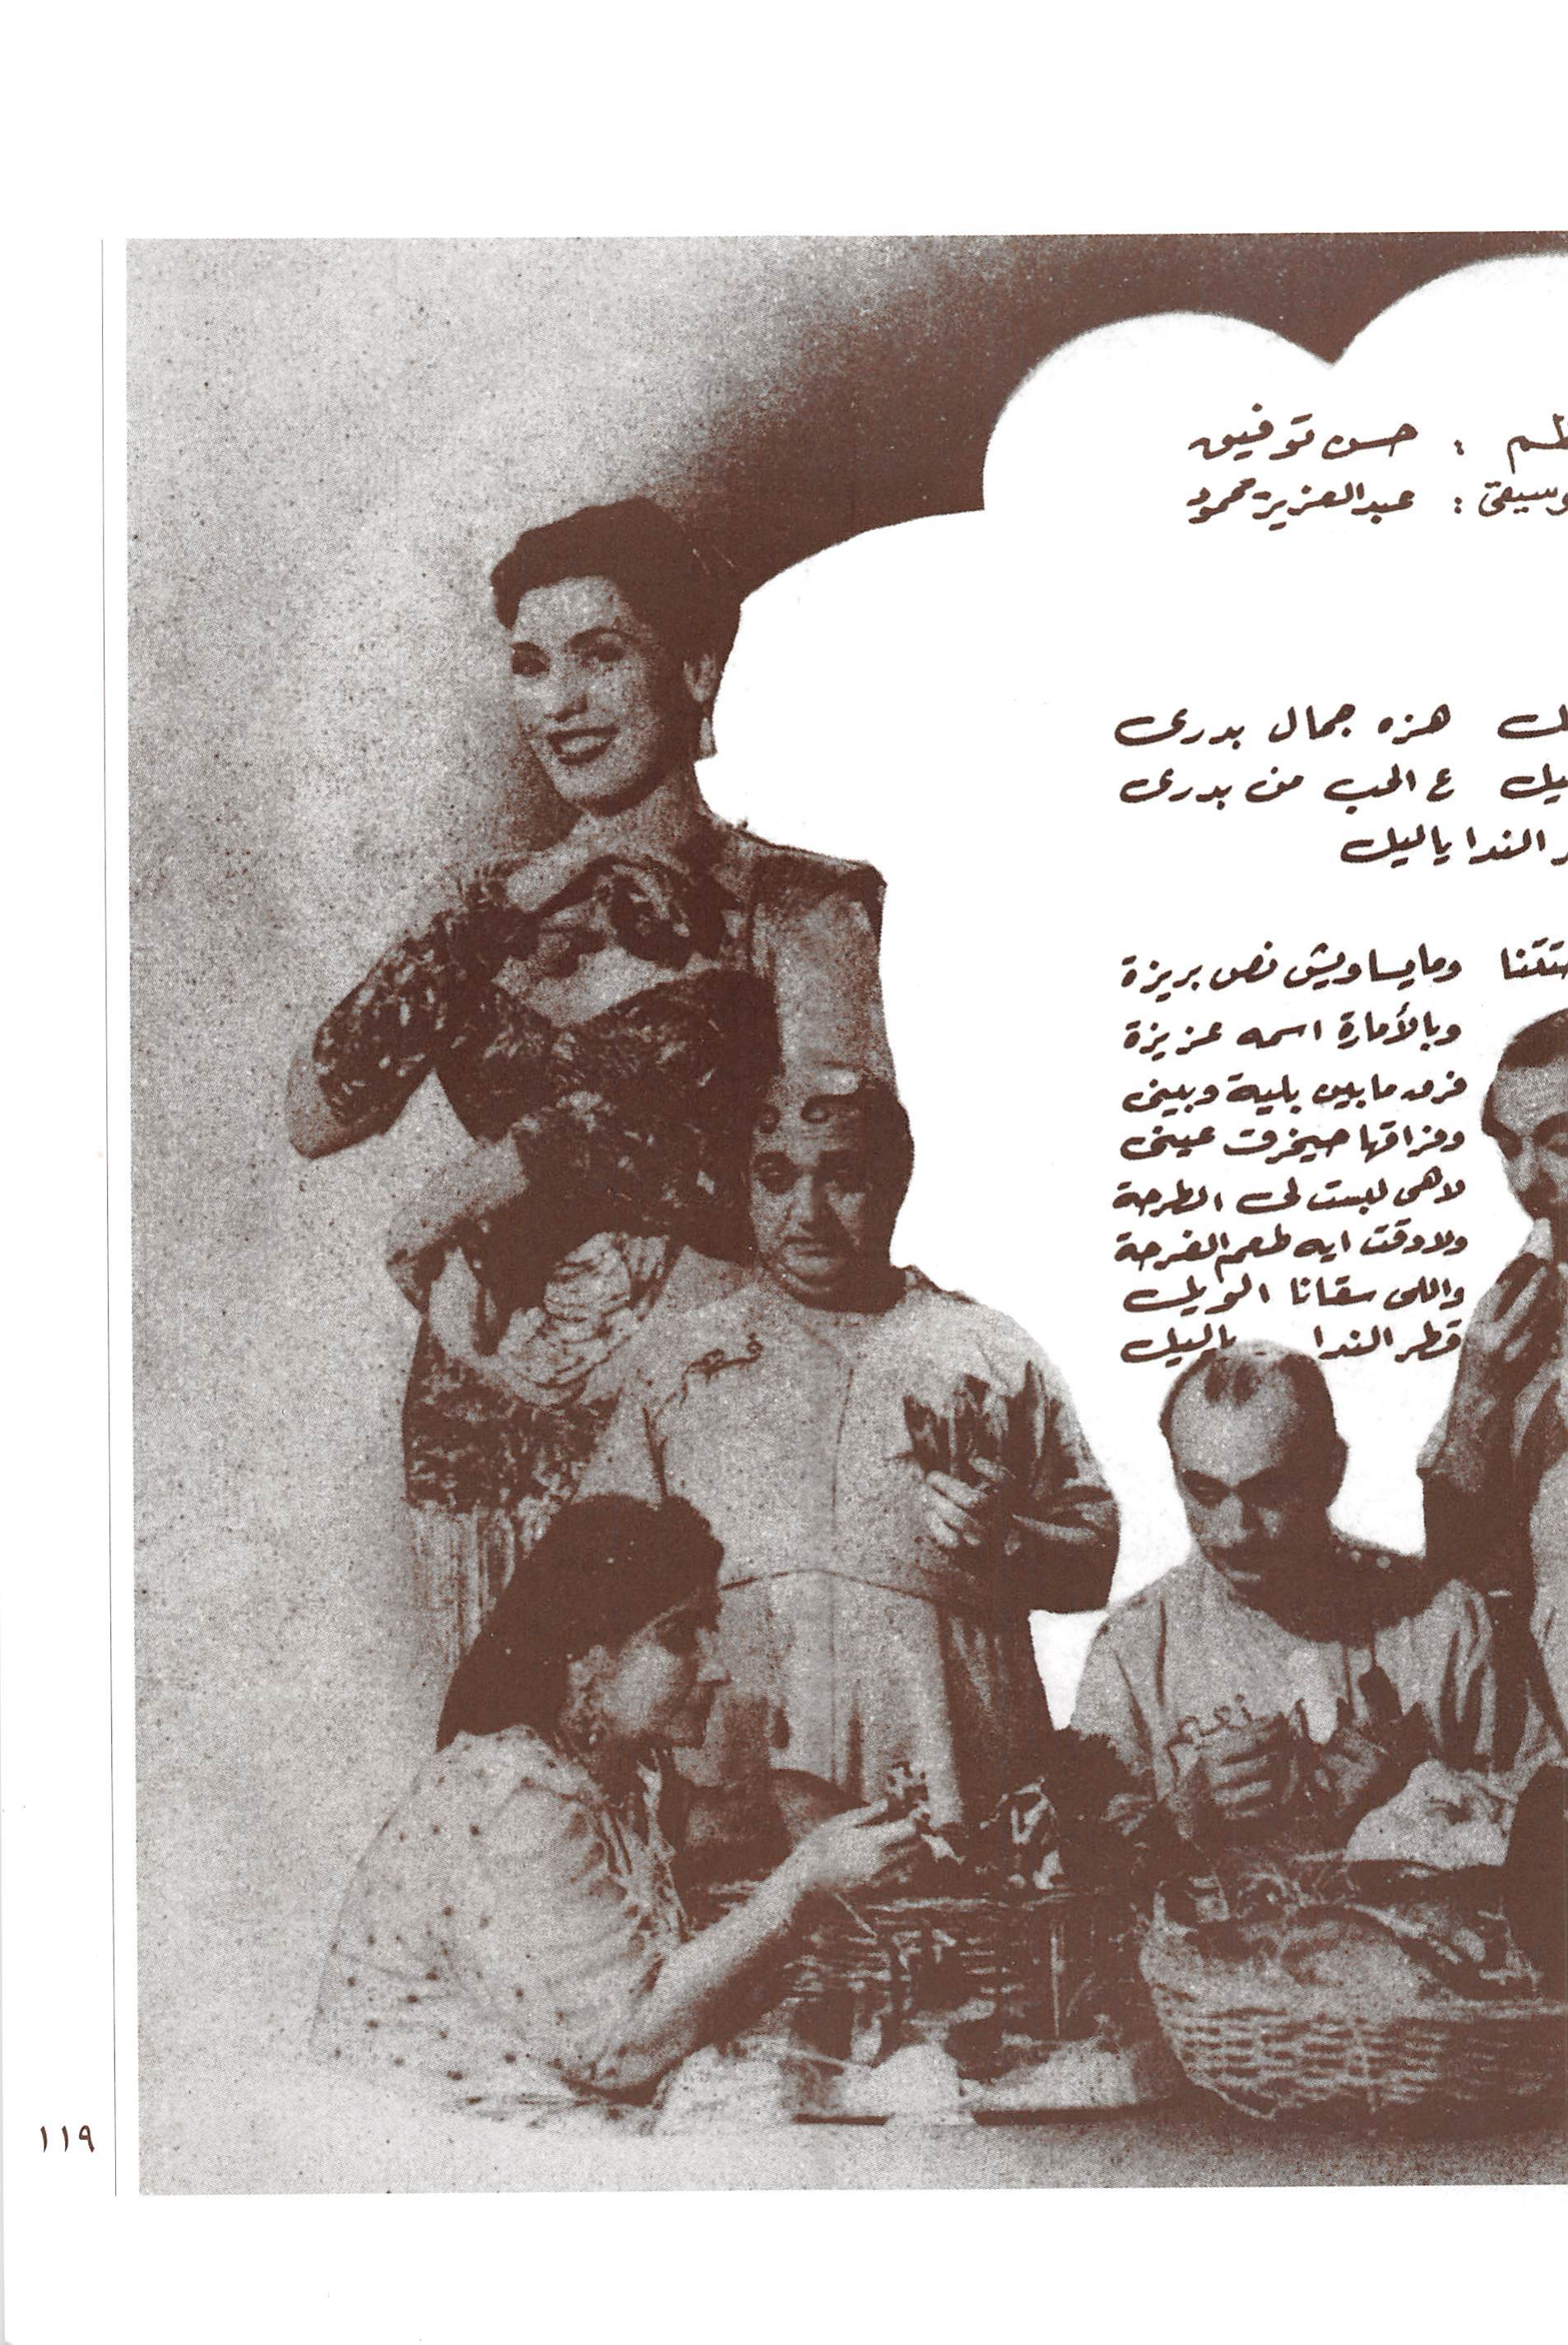 : حسن توفيق
: عبدالعزيز محمود
هزه جمال بدرى
ع الحب من بدرى
الندا ياليل
ومايساويش نص بريزة
وبالأمارة اسمه عزيزة
فرق مابين بلية وبينى
وفراقها حيخرق عينى
لاهى لبست لى الطرحة
ولادوقت ايه طعم الفرحة
واللى سقانا الويل
قطر الندا ياليل
نعيم
١١٩